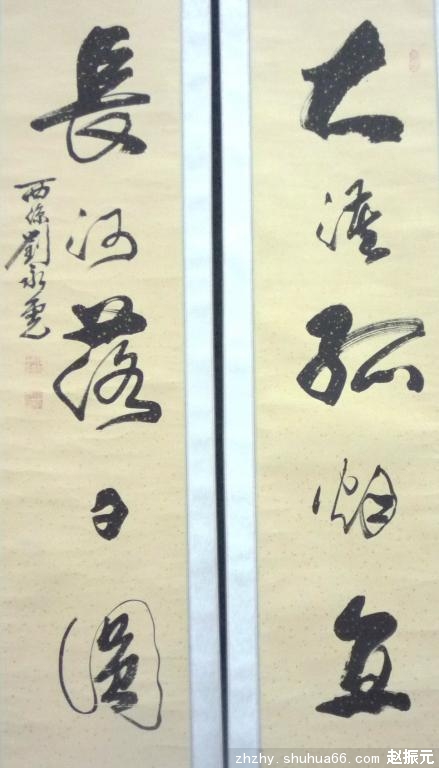 大漠孤烟直
長河落日圓
劉永
zhzhy.shuhua66.com 赵振元